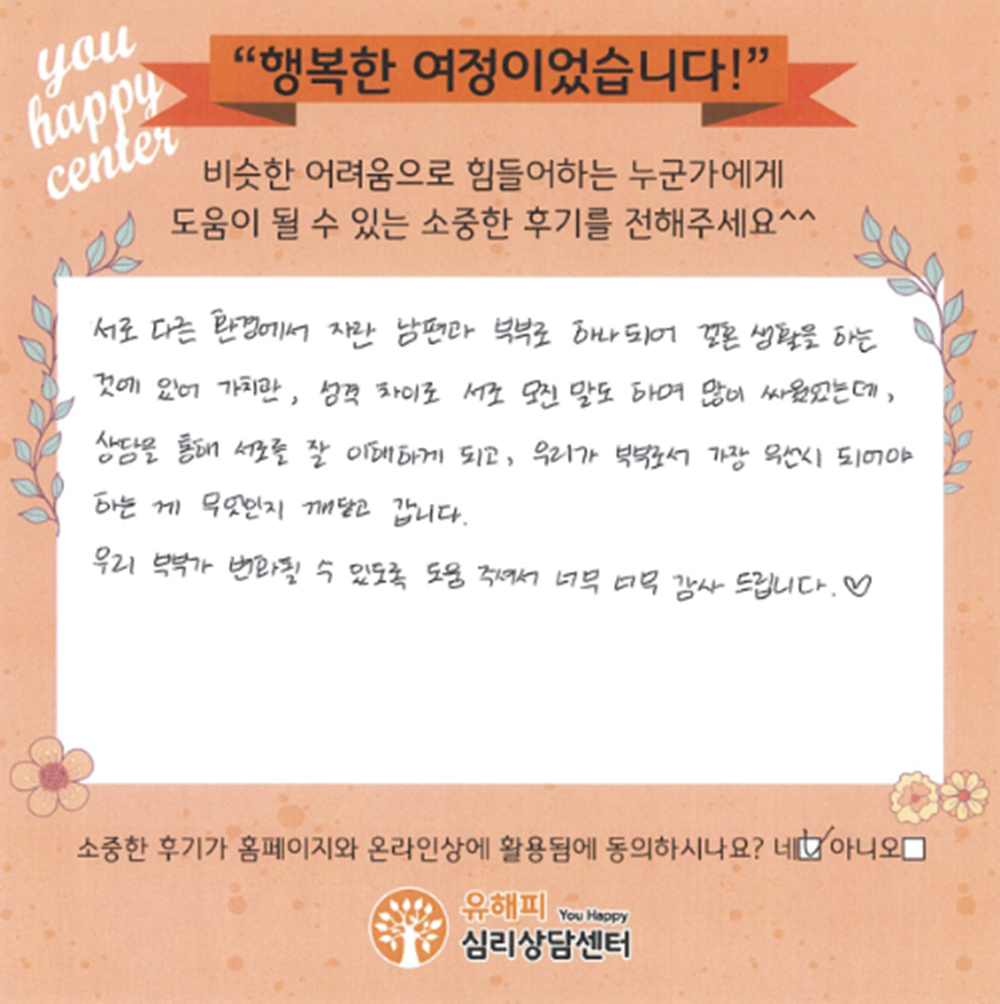 you
happy
center
“행복한 여정이었습니다!”
비슷한 어려움으로 힘들어하는 누군가에게
도움이 될 수 있는 소중한 후기를 전해주세요^^
서로 다른 환경에서 자란 남편과 부부로 하나되어 결혼 생활을 하는
것에 있어 가치관, 성격 차이로 서로 모진 말도 하며 많이 싸웠었는데,
상담을 통해 서로를 잘 이해하게 되고, 우리가 부부로서 가장 우선시 되어야
하는 게 무엇인지 깨닫고 갑니다.
우리 부부가 변화될 수 있도록 도움 주셔서 너무 너무 감사 드립니다. ♡
소중한 후기가 홈페이지와 온라인상에 활용됨에 동의하시나요? 네☑ 아니오□
유해피 You Happy
심리상담센터